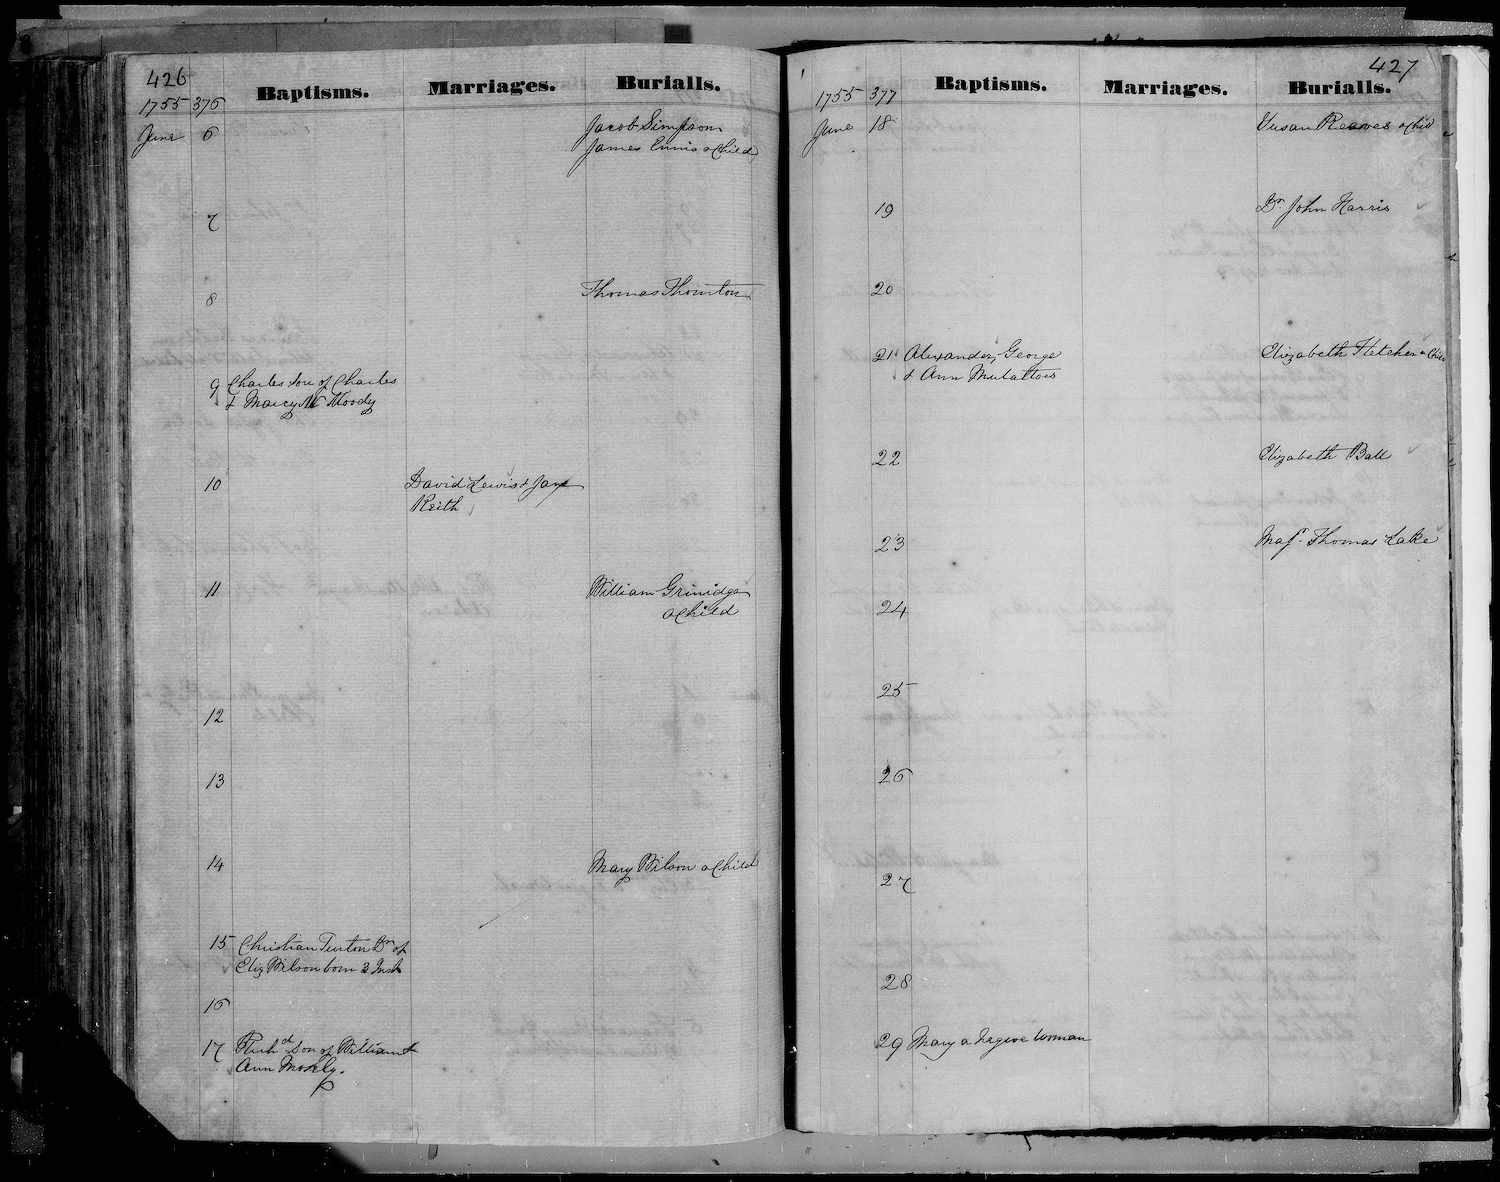 426
Baptisms. Marriages. Burialls.
1755 376
June 6 Jacob Simpson
James Ennis a Child
7
8 Thomas Thornton
9 Charles Son of Charles
& Marcy Moody
10 David Lewis & Jane
Keith
11 William Grinidge
a Child
12
13
14 Mary Wilson a Child
15 Christian Turton Dr of
Eliz Wilson born 2 Inst
16
17 Richd Son of William &
Ann Mosely.
427
Baptisms. Marriages. Burialls.
1755 377
June 18 Susan Reaves a Child
19 Dr. John Harris
20
21 Alexander, George Elizabeth Fletcher a Child
& Ann Mulattoes
22 Elizabeth Ball
23 Majr. Thomas Lake
24
25
26
27
28
29 Mary a Negroe Woman